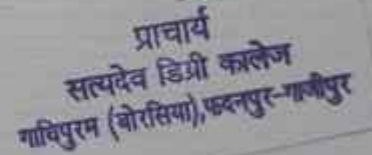 प्राचार्य
सत्यदेव डिग्री कालेज
गाधिपुरम (बोरसिया),फदनपुर-गाजीपुर